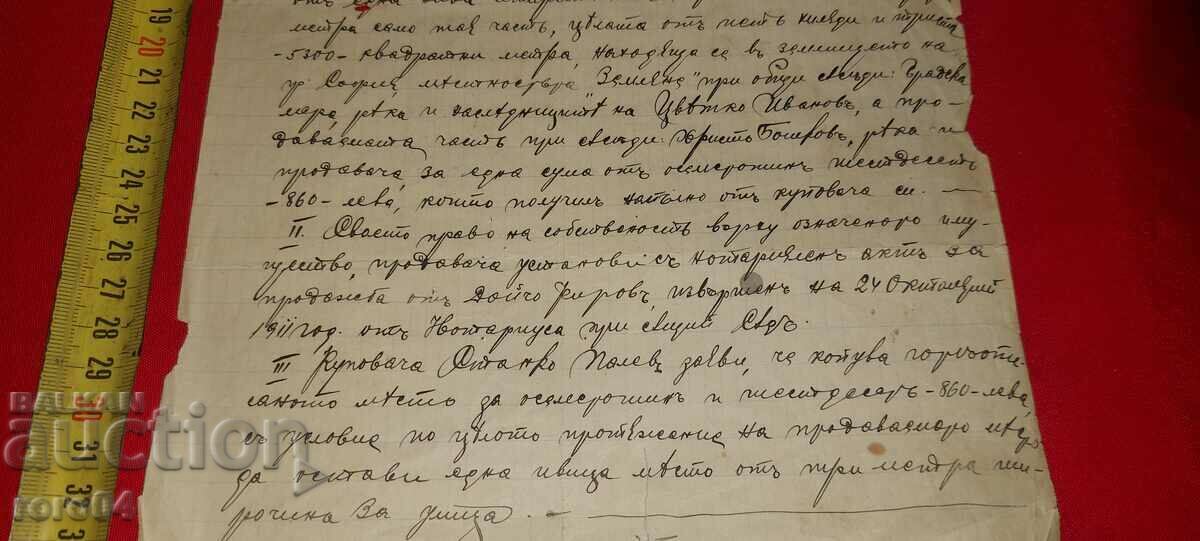 отъ една нива
метра само тая часть, цѣлата отъ петь хиляди и триста
-5300- квадратни метра, находяща се въ землището на
гр. София, мѣстностьта "Землене" при общи съсѣди: Градска
мера, рѣка и наследницитѣ на Цвѣтко Ивановъ, а про-
даваемата часть при съсѣди: Христо Божковъ, рѣка и
продавача, за една сума отъ осемстотинъ шестдесеть
-860- лева, които получилъ напълно отъ куповача си. —
II. Своето право на собственость върху означеното иму-
щество, продавача установи съ нотариаленъ актъ за
продажба отъ Дойчо Кировъ, извършенъ на 24 Октомврий
1911 год. отъ Нотариуса при същий Съдъ.
III Куповача Станко Палевъ заяви, че купува горѣопи-
саното мѣсто за осемстотинъ и шестдесеть -860- лева,
съ условие по цѣлото протѣжение на продаваемото мѣсто
да остави една ивица мѣсто отъ три метра ши-
рочина за улица. —
19
20
21
22
23
24
25
26
27
28
29
30
31
32
3
BALKAN
auction
toro04